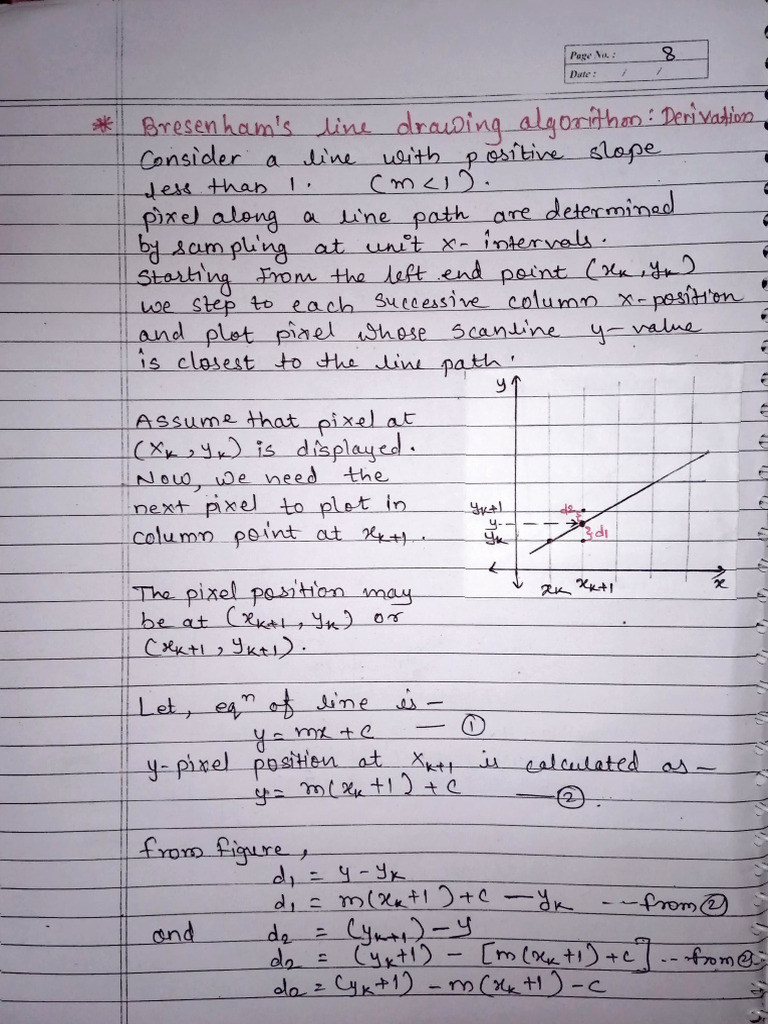 Page No.: 8
Date: / /
* Bresenham's line drawing algorithon: Derivation
Consider a line with positive slope
less than 1. (m<1).
pixel along a line path are determined
by sampling at unit x-intervals.
Starting From the left end point (xₖ,yₖ)
we step to each successive column x-position
and plot pixel whose scanline y-value
is closest to the line path.
Assume that pixel at
(xₖ,yₖ) is displayed.
Now, we need the
next pixel to plot in
column point at xₖ₊₁.
y
yₖ+1
y
yₖ
d2
d1
xₖ xₖ+1
x
The pixel position may
be at (xₖ₊₁, yₖ) or
(xₖ₊₁, yₖ₊₁).
Let, eqⁿ of line is –
y = mx + c — ①
y-pixel position at xₖ₊₁ is calculated as –
y = m(xₖ+1) + c — ②.
from figure,
d₁ = y - yₖ
d₁ = m(xₖ+1) + c - yₖ --- from ②
and d₂ = (yₖ₊₁) - y
d₂ = (yₖ+1) - [m(xₖ+1) + c] -- from ②
d₂ = (yₖ+1) - m(xₖ+1) - c